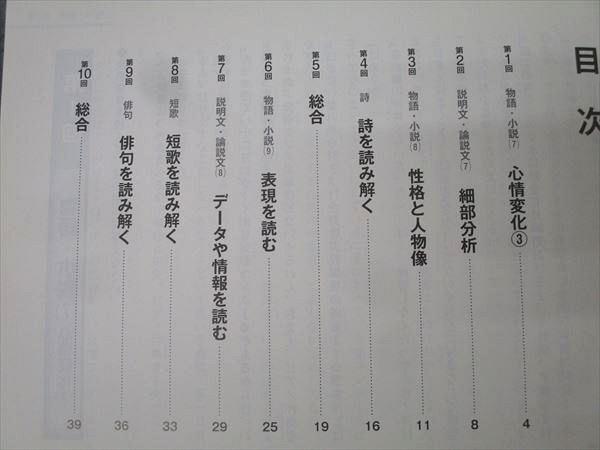 目次
第1回 物語・小説(7) 心情変化③ 4
第2回 説明文・論説文(7) 細部分析 8
第3回 物語・小説(8) 性格と人物像 11
第4回 詩 詩を読み解く 16
第5回 総合 19
第6回 物語・小説(9) 表現を読む 25
第7回 説明文・論説文(8) データや情報を読む 29
第8回 短歌 短歌を読み解く 33
第9回 俳句 俳句を読み解く 36
第10回 総合 39